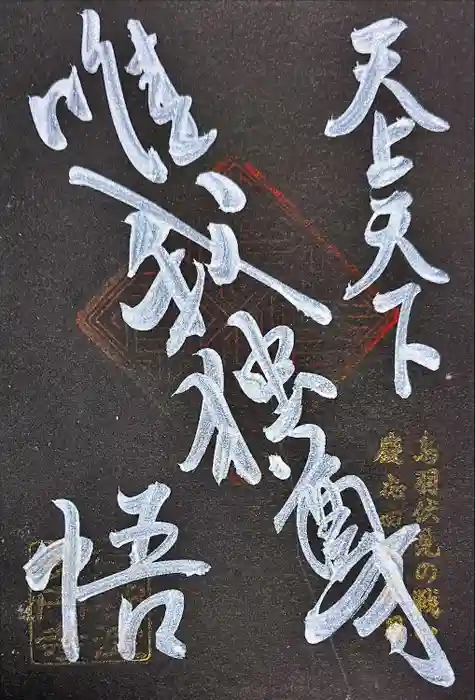 天上天下
唯我独尊
悟
鳥羽伏見の戦い
慶応四